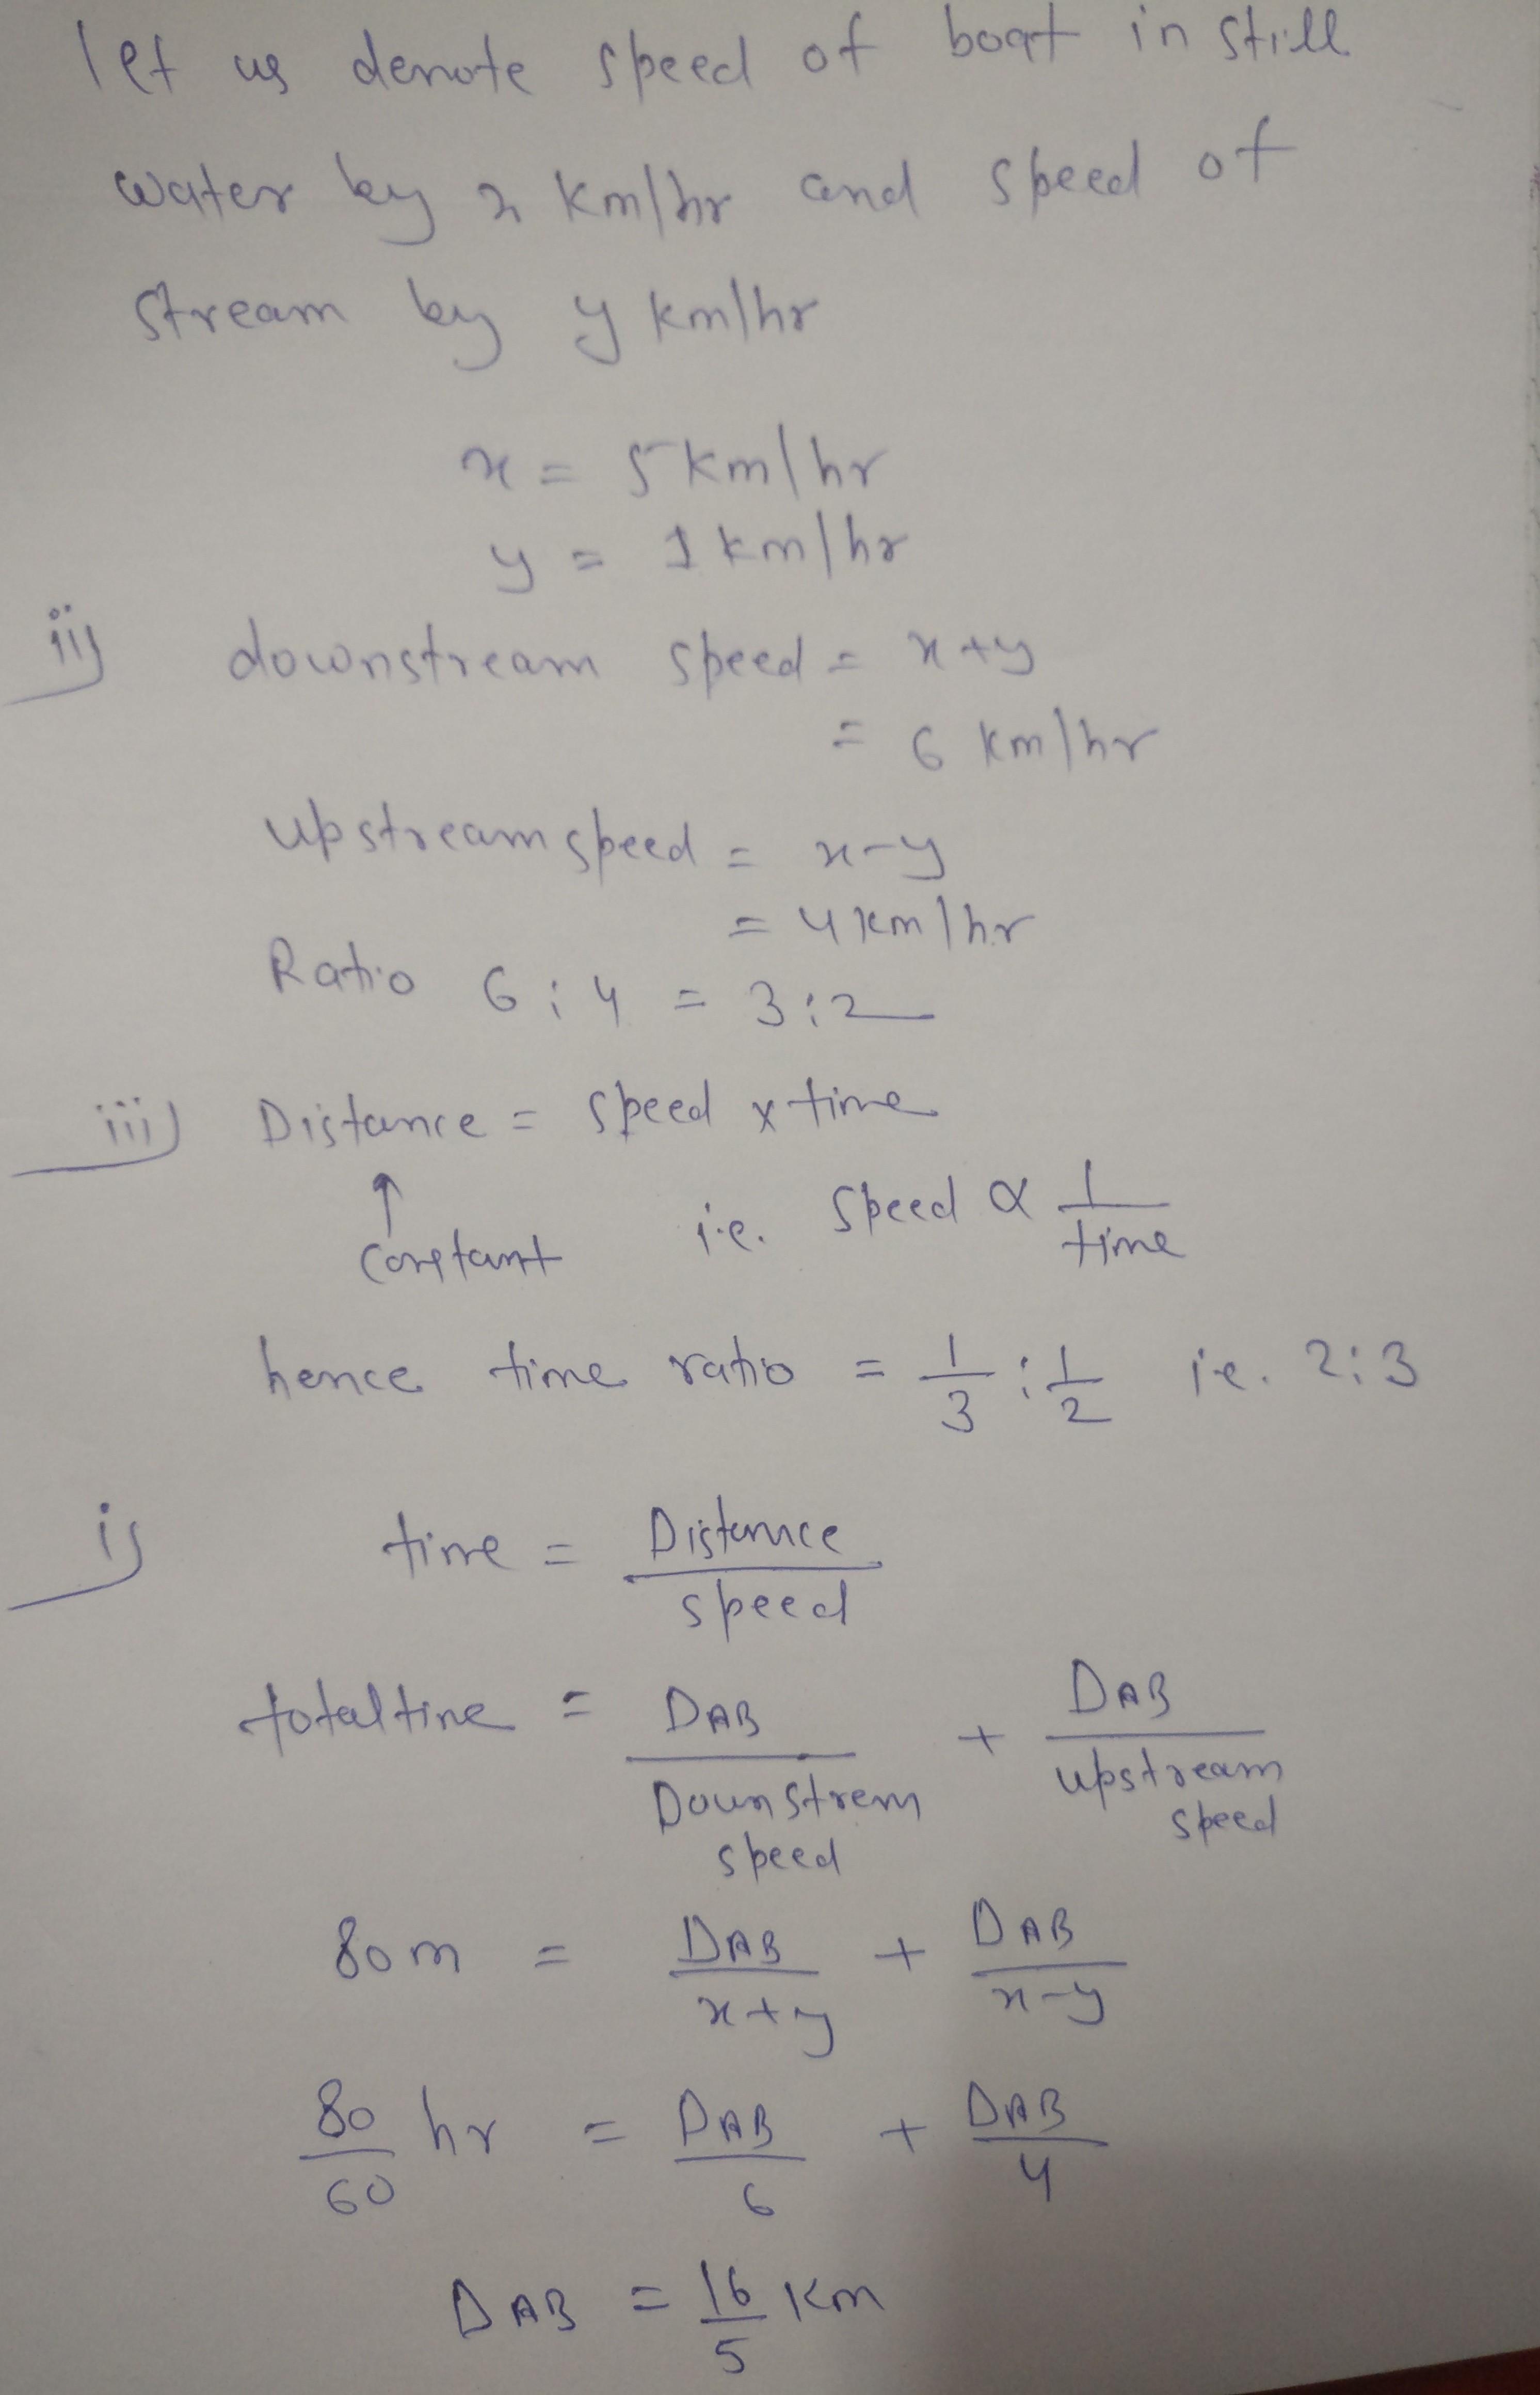 let us denote speed of boat in still
water by x km/hr and speed of
stream by y km/hr
x = 5 km/hr
y = 1 km/hr
ii) downstream speed = x+y
= 6 km/hr
upstream speed = x-y
= 4 km/hr
Ratio 6:4 = 3:2
iii) Distance = speed x time
↑
constant i.e. speed ∝ 1/time
hence time ratio = 1/3 : 1/2 i.e. 2:3
i) time = Distance/speed
total time = DAB/Downstrem speed + DAB/upstream speed
80 m = DAB/x+y + DAB/x-y
80/60 hr = DAB/6 + DAB/4
DAB = 16/5 km